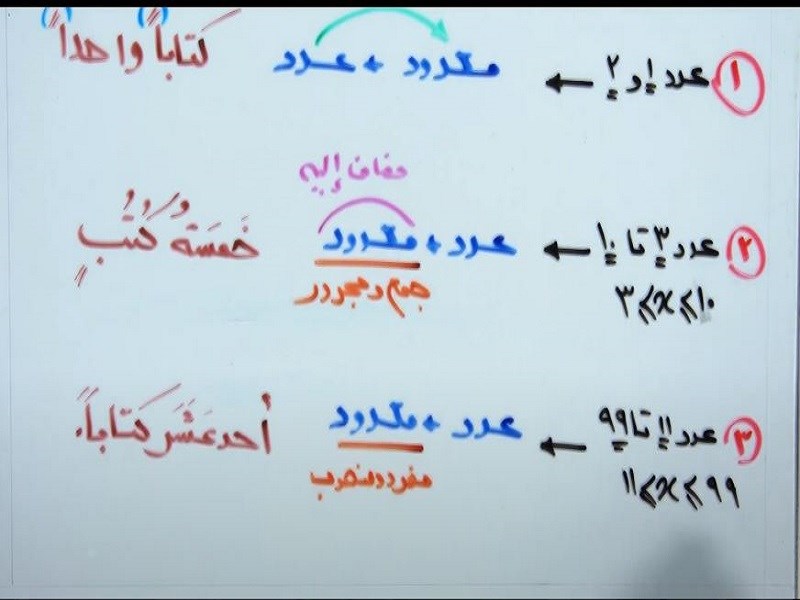 ① عدد ۱ و ۲ ← معدود + عدد كتاباً واحداً
مضاف إليه
② عدد ۳ تا ۱۰ ← عدد + معدود خَمسَة كُتُبٍ
۳ ⩽ x ⩽ ۱۰ جمع و مجرور
③ عدد ۱۱ تا ۹۹ ← عدد + معدود أحد عَشَرَ كتاباً.
۱۱ ⩽ x ⩽ ۹۹ مفرد و منصوب